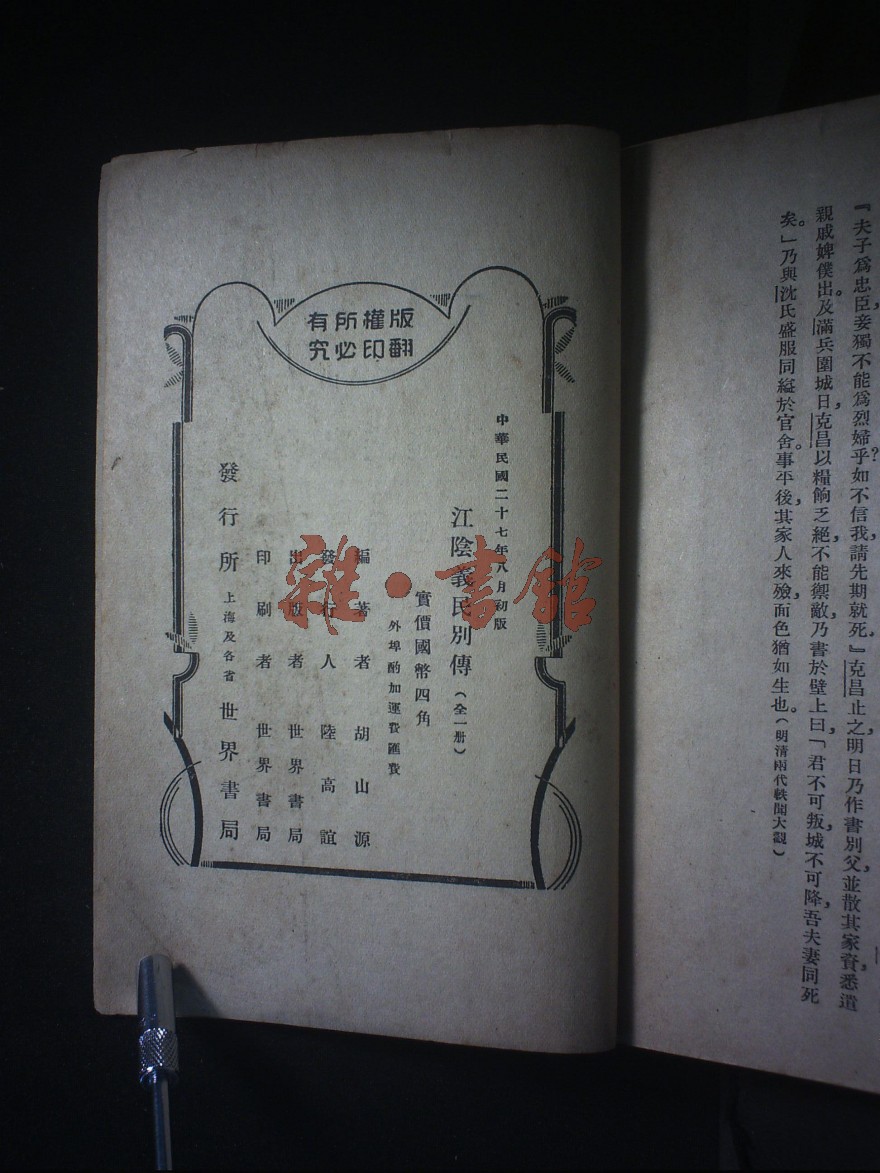 『夫子爲忠臣，妾獨不能爲烈婦乎？如不信我，請先期就死。』克昌止之，明日乃作書別父，並散其家資，悉遣
親戚婢僕出。及滿兵圍城日，克昌以糧餉乏絕，不能禦敵，乃書於壁上曰：「君不可叛，城不可降，吾夫妻同死
矣。」乃與沈氏盛服同縊於官舍。事平後，其家人來殮，面色猶如生也。（明清兩代軼聞大觀）
版權所有
翻印必究
中華民國二十七年八月初版
江陰義民別傳（全一册）
實價國幣四角
外埠酌加運費匯費
編著者 胡山源
發行人 陸高誼
出版者 世界書局
印刷者 世界書局
發行所 上海及各省 世界書局
雜·書館